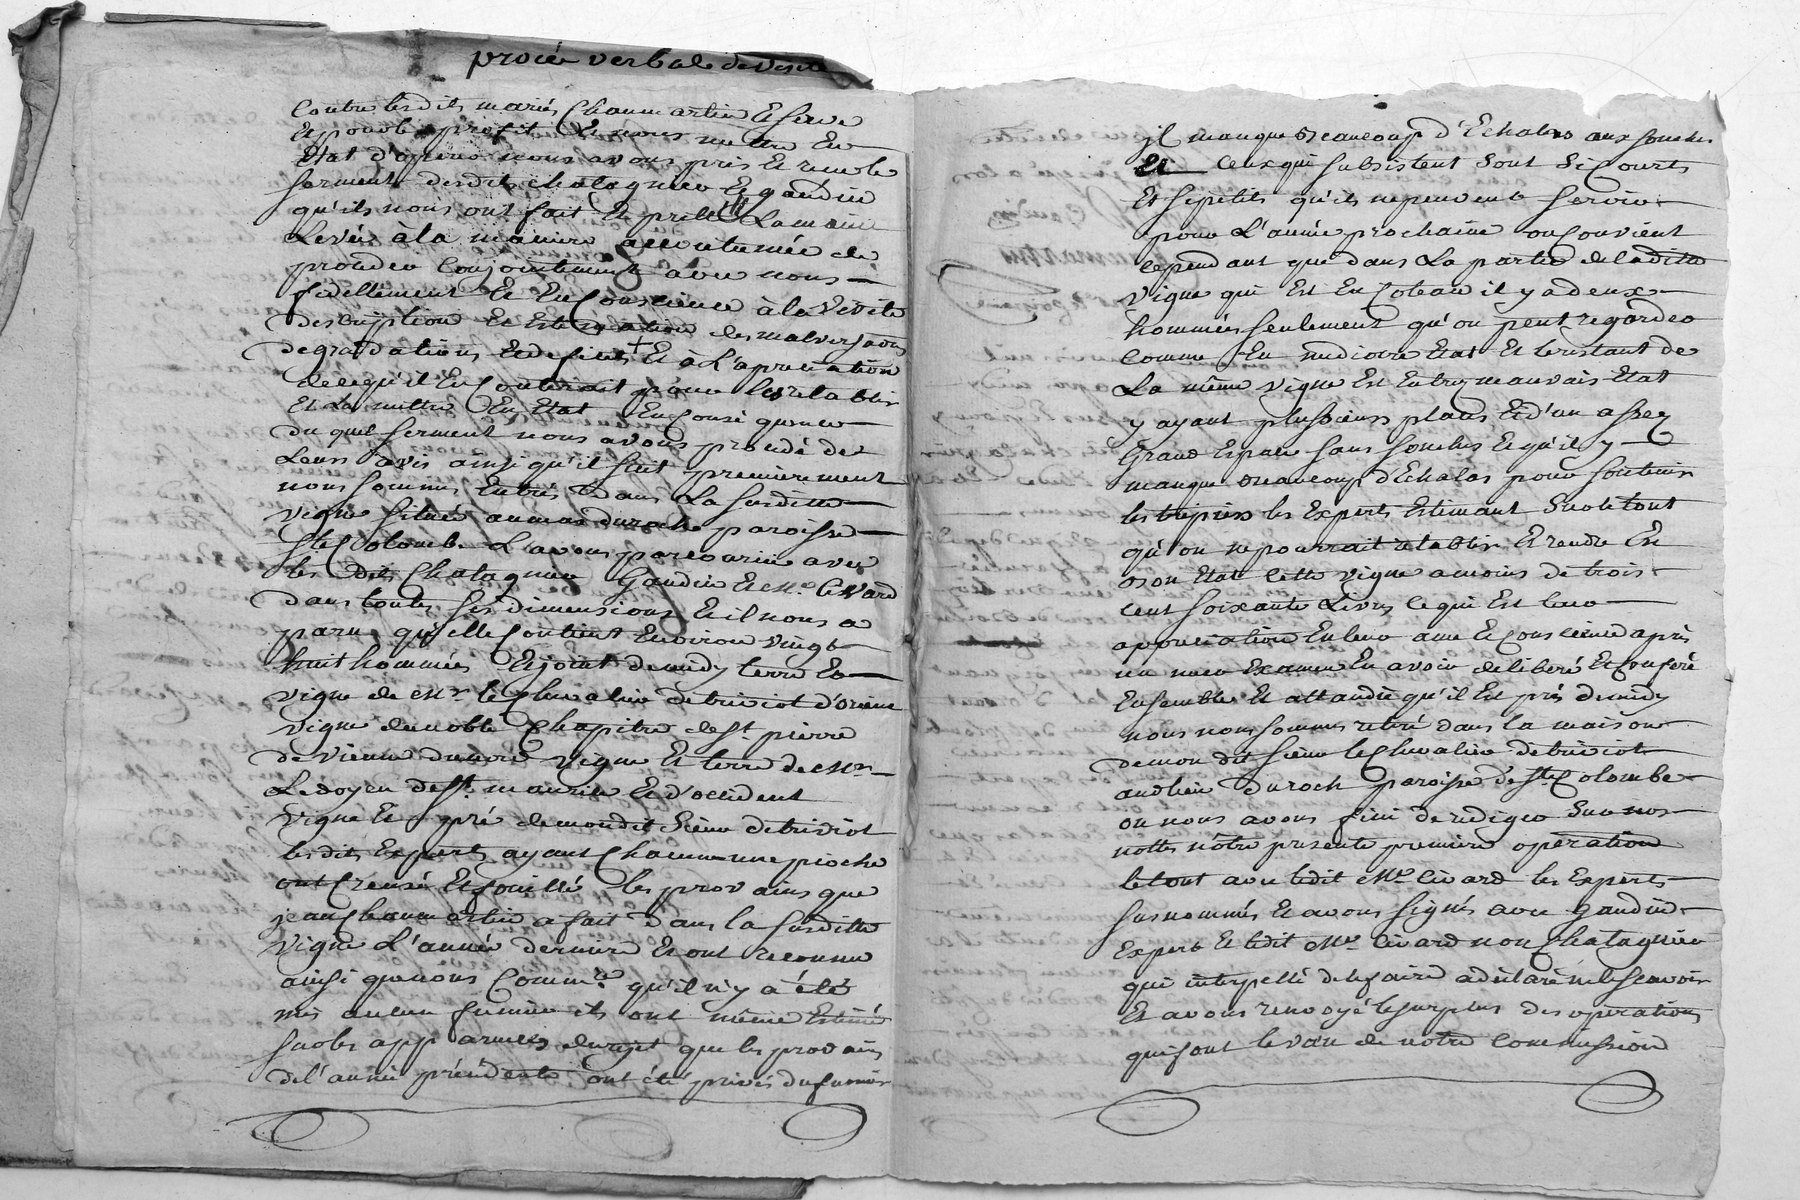 procés verbale de visite
Contre lesdits mariés Chaumartin Et servir
Et pouoir profit Et nous mettre En
Etat d'operer nous avons pris Et reçu le
serment desdits chatagnier Et gaudin
qu'ils nous ont fait Et preté La main
Levée à la maniere accoutumée de
proceder Conjointement avec nous
fidellement Et En Conscience à la visite
description Et Estimation des malversaons
degradations Et deficits + Et a L'apreciation
de ce qu'il En Couterait pour les retablir
Et La mettre En Etat En Consequence
du quel serment nous avons procedé de
Leurs avis ainsi qu'il suit premierement
nous sommes Entrés dans La susditte
vigne située au mas du roche paroisse
Ste Colombe L'avons parcourue avec
les dits Chatagnier Gaudin Et Me Civard
dans toutes ses dimensions Et il nous a
paru qu'elle Contient Environ vingt
huit hommées Et joint de midy terre Et
vigne de Mr le Chevalier de triviot d'orient
vigne du noble Chapitre de St pierre
de vienne du nord vigne Et terre de Mr
Le doyen de St maurice Et d'occident
vigne Et pré de mondit Sieur de triviot
lesdits Experts ayant Chacun une pioche
ont Creusé Et fouillé les provains que
jean Chaumartin a fait Dans la susditte
vigne L'année derniere Et ont reconnu
ainsi que nous Commre qu'il n'y a été
mis aucun fumier ils ont même Estimé
sur les apparances du rejet que les provains
de l'année précédente ont été privés du fumier
jl manque Beaucoup d'Echalas aux souches
Et Ceux qui subsistent sont si Courts
Et si petits qu'ils ne peuvent servir
pour L'année prochaine on Convient
cependant que dans La partie de laditte
vigne qui Est En Coteau il y a deux
hommées seulement qu'on peut regarder
comme En mediocre Etat Et le restant de
La même vigne Est En trez mauvais Etat
y ayant plusieurs places Et d'un assez
Grand Espace sans souches Et qu'il y
manque Beaucoup d'Echalas pour soutenir
les treprises les Experts Estimant sur le tout
qu'on ne pourrait retablir Et rendre En
Bon Etat cette vigne a moins de trois
cent soixante Livres ce qui Est leur
appreciation En leur ame Et Conscience après
un mur Examen En avoir déliberé Et Conferé
Ensemble Et attandu qu'il Est près de midy
nous nous sommes retiré dans la maison
de mon dit sieur le Chevalier de triviot
audlieu du roch paroisse de Ste Colombe
ou nous avons fini de rediger sur nos
nottes nôtre presente premiere operation
le tout avec ledit Me Civard les Experts
susnommés Et avons signés avec gaudin
Expert Et ledit Me Civard non Chatagnier
qui interpellé de le faire a déclaré ne le scavoir
Et avons renvoyé le surplus des operations
qui font le vœu de notre Commission